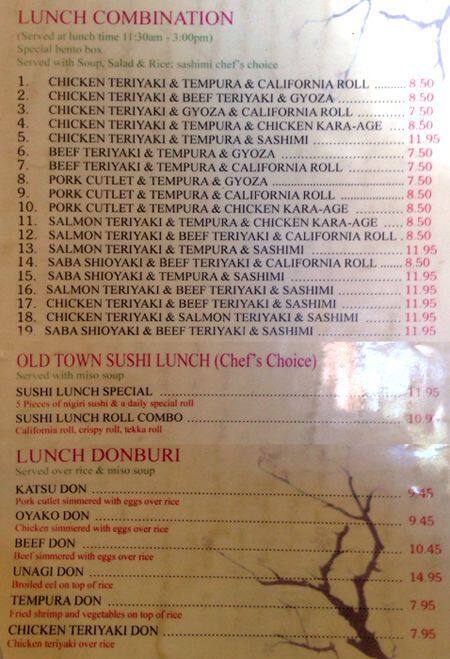 LUNCH COMBINATION
(Served at lunch time 11:30am - 3:00pm)
Special bento box
Served with Soup, Salad & Rice; sashimi chef's choice
1. CHICKEN TERIYAKI & TEMPURA & CALIFORNIA ROLL .......... 8.50
2. CHICKEN TERIYAKI & BEEF TERIYAKI & GYOZA .......... 8.50
3. CHICKEN TERIYAKI & GYOZA & CALIFORNIA ROLL .......... 7.50
4. CHICKEN TERIYAKI & TEMPURA & CHICKEN KARA-AGE .... 8.50
5. CHICKEN TERIYAKI & TEMPURA & SASHIMI .......... 11.95
6. BEEF TERIYAKI & TEMPURA & GYOZA .......... 7.50
7. BEEF TERIYAKI & TEMPURA & CALIFORNIA ROLL .......... 7.50
8. PORK CUTLET & TEMPURA & GYOZA .......... 7.50
9. PORK CUTLET & TEMPURA & CALIFORNIA ROLL .......... 8.50
10. PORK CUTLET & TEMPURA & CHICKEN KARA-AGE .......... 8.50
11. SALMON TERIYAKI & TEMPURA & CHICKEN KARA-AGE ..... 8.50
12. SALMON TERIYAKI & BEEF TERIYAKI & CALIFORNIA ROLL . 8.50
13. SALMON TERIYAKI & TEMPURA & SASHIMI .......... 11.95
14. SABA SHIOYAKI & BEEF TERIYAKI & CALIFORNIA ROLL ....... 8.50
15. SABA SHIOYAKI & TEMPURA & SASHIMI .......... 11.95
16. SALMON TERIYAKI & BEEF TERIYAKI & SASHIMI .......... 11.95
17. CHICKEN TERIYAKI & BEEF TERIYAKI & SASHIMI .......... 11.95
18. CHICKEN TERIYAKI & SALMON TERIYAKI & SASHIMI .......... 11.95
19. SABA SHIOYAKI & BEEF TERIYAKI & SASHIMI .......... 11.95
OLD TOWN SUSHI LUNCH (Chef's Choice)
Served with miso soup
SUSHI LUNCH SPECIAL .......... 11.95
5 Pieces of nigiri sushi & a daily special roll
SUSHI LUNCH ROLL COMBO .......... 10.95
California roll, crispy roll, tekka roll
LUNCH DONBURI
Served over rice & miso soup
KATSU DON .......... 9.45
Pork cutlet simmered with eggs over rice
OYAKO DON .......... 9.45
Chicken simmered with eggs over rice
BEEF DON .......... 10.45
Beef simmered with eggs over rice
UNAGI DON .......... 14.95
Broiled eel on top of rice
TEMPURA DON .......... 7.95
Fried shrimp and vegetables on top of rice
CHICKEN TERIYAKI DON .......... 7.95
Chicken teriyaki over rice